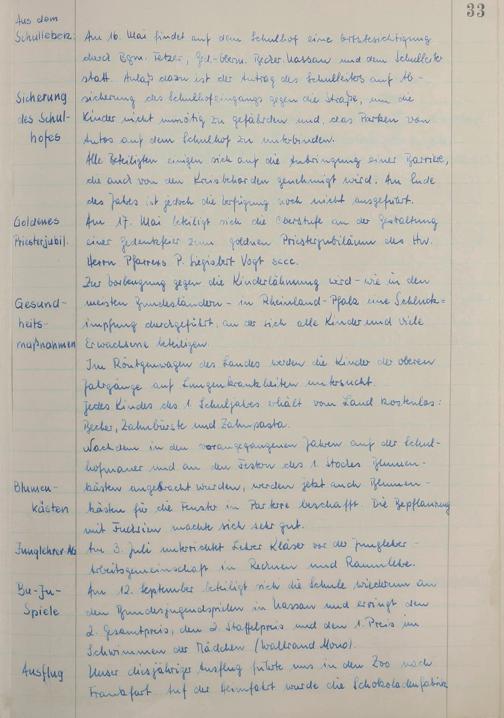 33
Aus dem
Schulleben:
Am 16. Mai findet auf dem Schulhof eine Ortsbesichtigung
durch Bgm. Fetzer, Becker Nassau und dem Schulleiter
statt. Anlaß dazu ist der Antrag des Schulleiters auf Ab-
Sicherung
des Schul-
hofes
sicherung des Schulhofeingangs gegen die Straße, um die
Kinder nicht unnötig zu gefährden und, das Parken von
Autos auf dem Schulhof zu unterbinden.
Alle Beteiligten einigen sich auf die Anbringung einer Barriere,
die auch von den Kreisbehörden genehmigt wird. Am Ende
des Jahres ist jedoch die Verfügung noch nicht ausgeführt.
Goldenes
Priesterjubil.
Am 17. Mai beteiligt sich die Oberstufe an der Gestaltung
einer Gedenkfeier zum goldnen Priesterjubiläum des Hw.
Herrn Pfarrers P. Vogt
Gesund-
heits-
maßnahmen
Zur Vorbeugung gegen die Kinderlähmung wird - wie in den
meisten Bundesländern - in Rheinland-Pfalz eine Schluck=
impfung durchgeführt, an der sich alle Kinder und viele
Erwachsene beteiligen.
Im Röntgenwagen des Landes werden die Kinder der oberen
Jahrgänge auf Lungenkrankheiten untersucht.
Jedes Kindes des 1. Schuljahres erhält vom Land kostenlos:
Becher, Zahnbürste und Zahnpasta.
Nachdem in den vorangegangenen Jahren auf der Schul-
hofmauer und an den Festern des 1. Stockes Blumen-
Blumen-
kästen
kästen angebracht wurden, werden jetzt auch Blumen-
kästen für die Fenster im Parterre beschafft. Die Bepflanzung
mit Fuchsien machte sich sehr gut.
Junglehrer-AG
Am 3. Juli unterrichtet Lehrer Kläser vor der Junglehrer-
Arbeitsgemeinschaft in Rechnen und Raumlehre.
Bu-Ju-
Spiele
Am 12. September beteiligt sich die Schule wiederum an
den Bundesjugendspielen in Nassau und erringt den
2. Gesamtpreis, den 2. Staffelpreis und den 1. Preis im
Schwimmen der Mädchen
Ausflug
Unser diesjähriger Ausflug führte uns in den Zoo nach
Frankfurt. Auf der Heimfahrt wurde die Schokoladenfabrik